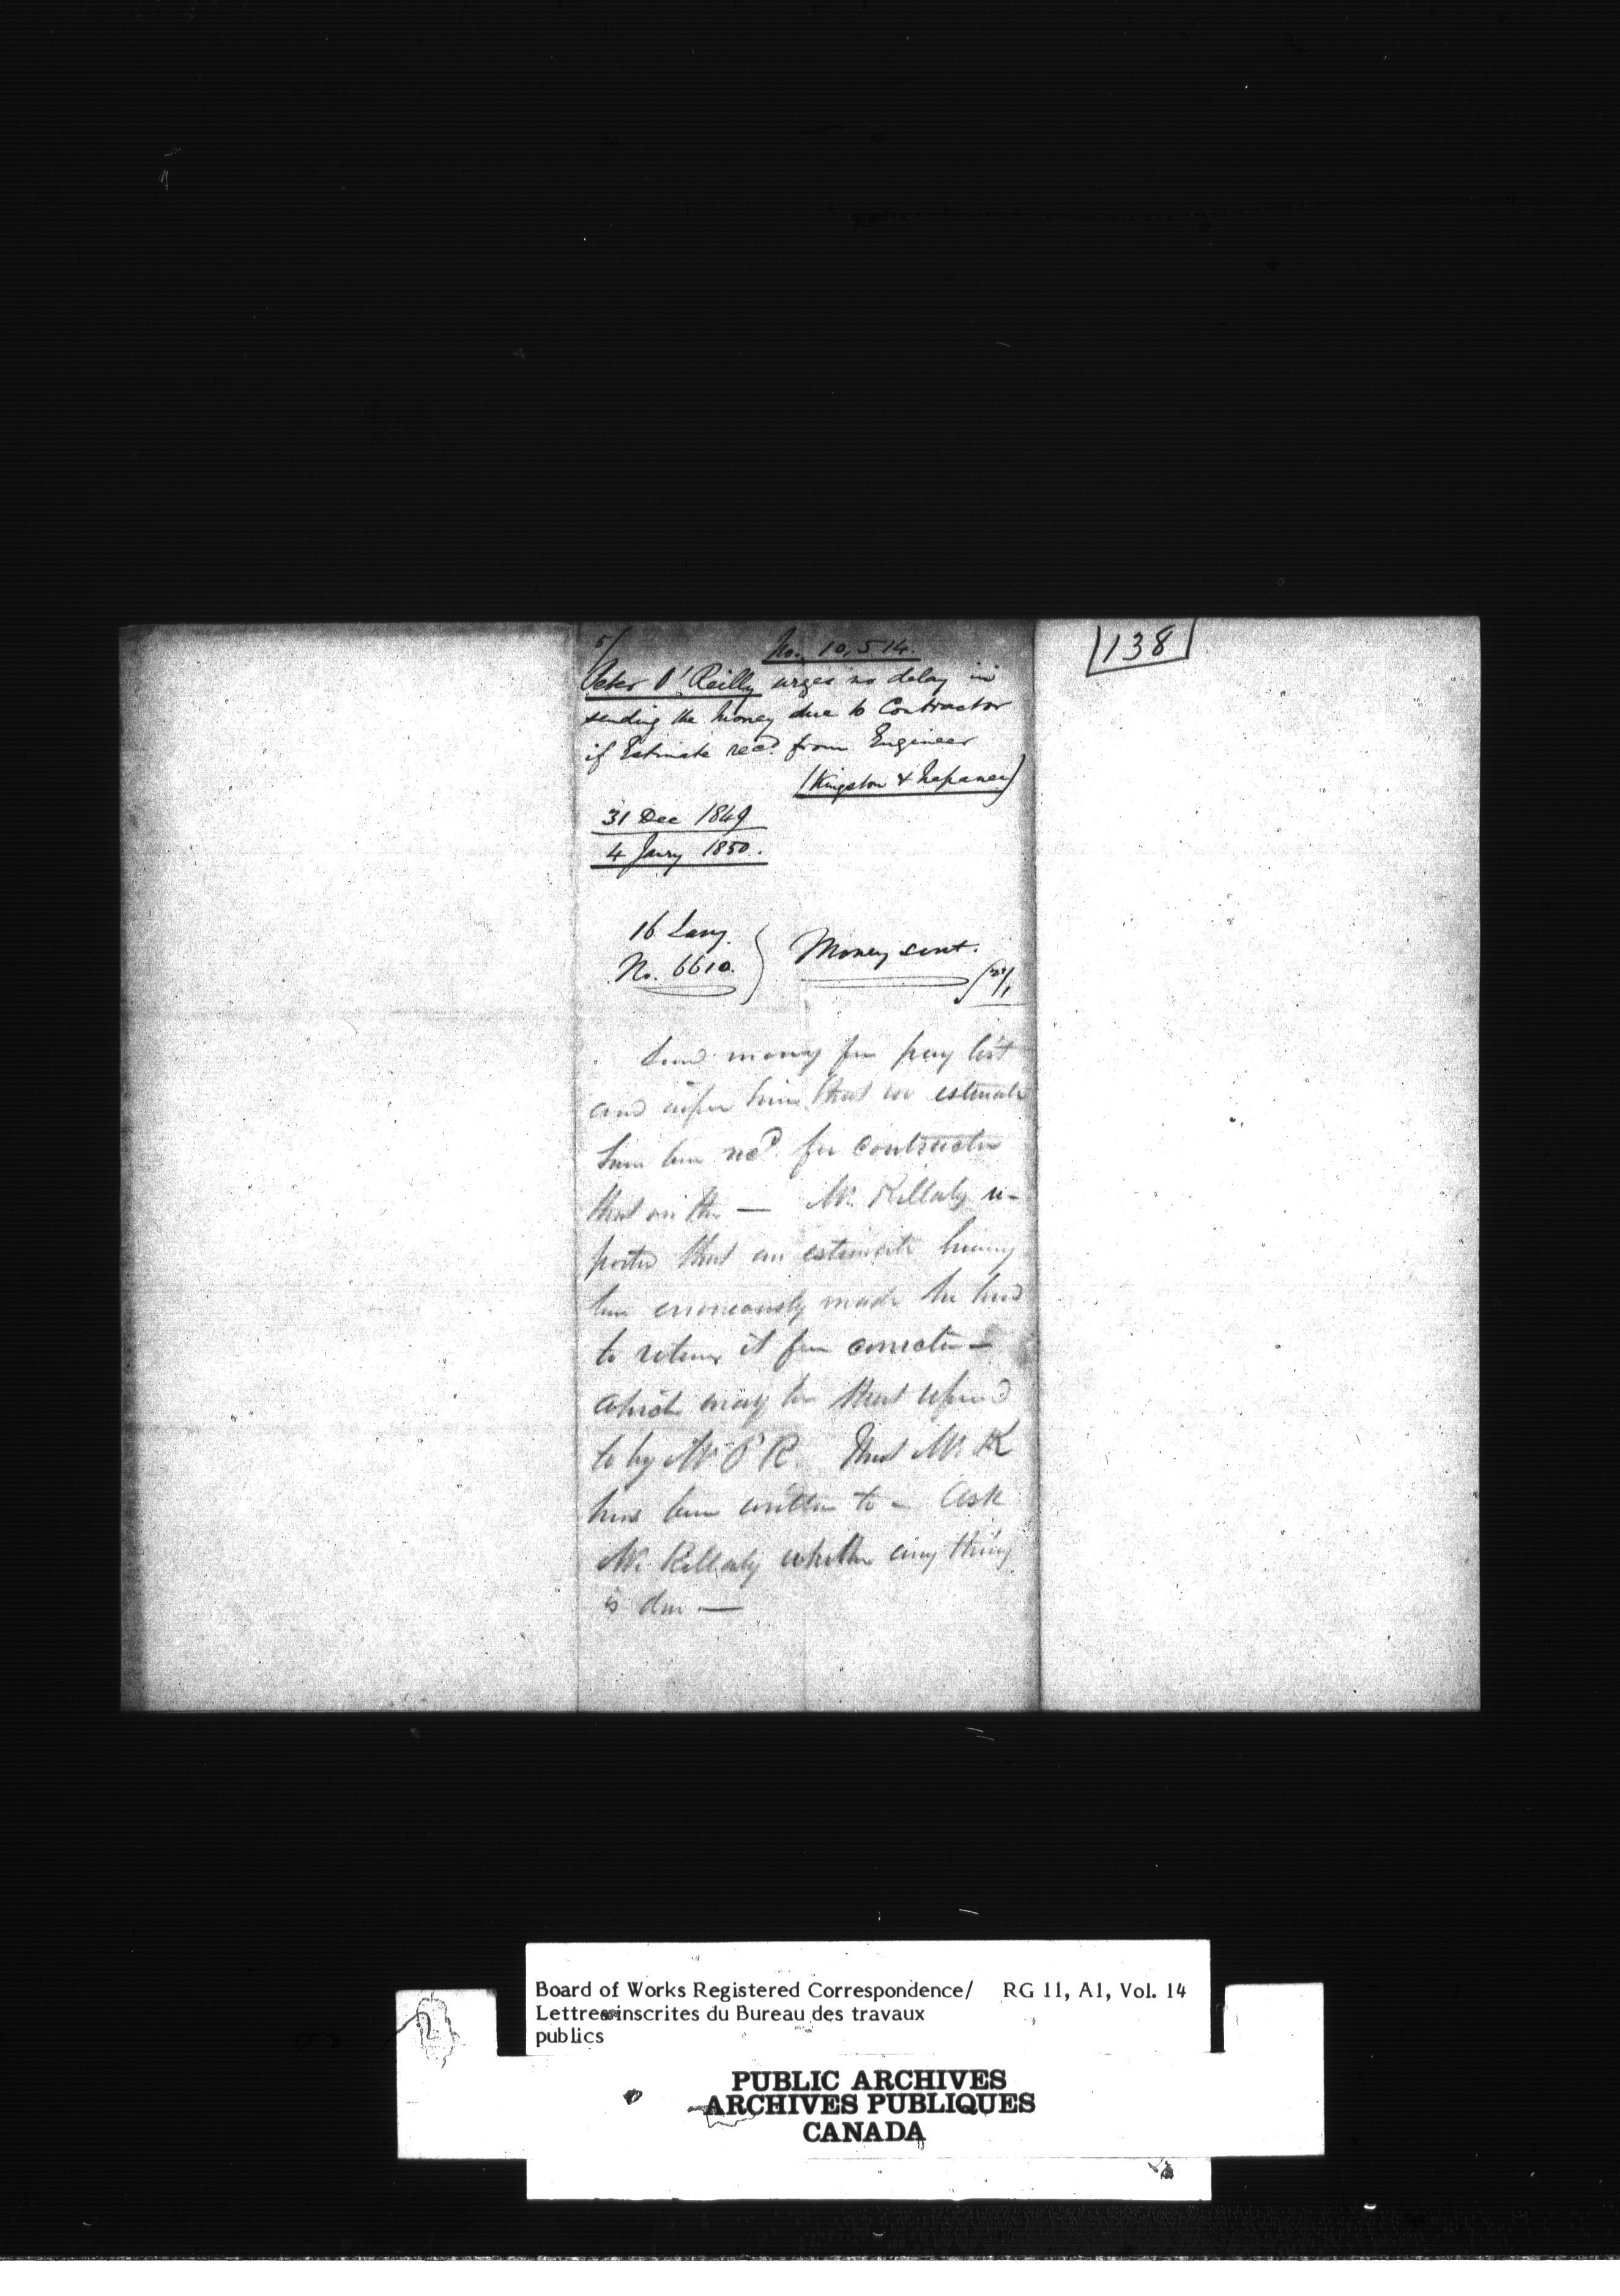 5/
No. 10,514.
138
Peter O'Reilly urges no delay in
sending the money due to Contractor
if Estimate recd. from Engineer
(Kingston & Napanee)
31 Dec 1849
4 Jany 1850.
16 Jany.
No. 6610.
Money sent.
Send money for pay list
and infor him that no estimate
has been recd. for contractor
that on the — Mr. Killaly re-
ported that an estimate having
been erroneously made he had
to return it for correction —
which may be that referred
to by Mr O'R. That Mr. K
has been written to — Ask
Mr. Killaly whether any thing
is due —
Board of Works Registered Correspondence/ RG 11, A1, Vol. 14
Lettres inscrites du Bureau des travaux
publics
PUBLIC ARCHIVES
ARCHIVES PUBLIQUES
CANADA